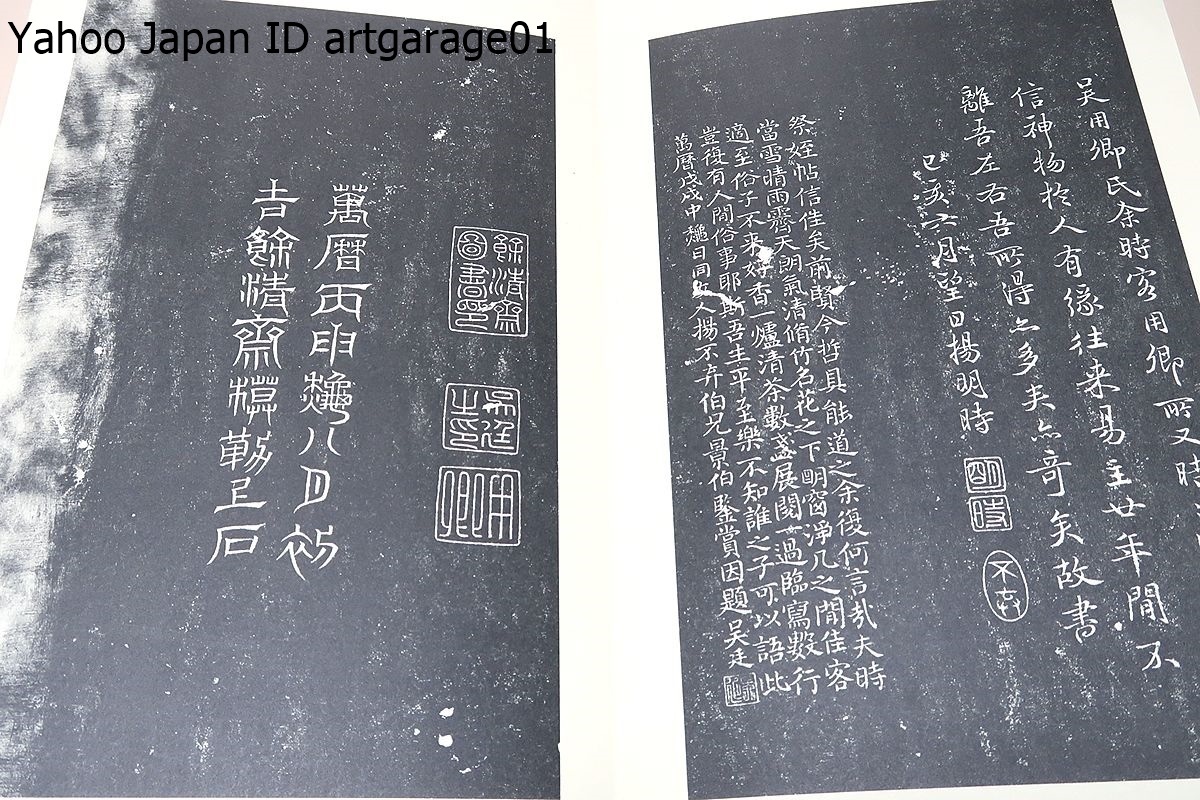 Yahoo Japan ID artgarage01
吳用卿氏余時客用卿所又時
信神物於人有緣往來易主廿年間不
離吾左右吾所得亦多矣亦奇矣故書
己亥六月望日楊明時
明時
不弃
祭姪帖信佳矣前賢今哲具能道之余復何言哉夫時
當雪晴雨霽天朗氣清脩竹名花之下明窗淨几之間佳客
適至俗子不来好香一爐清茶數盞展閱一過臨寫數行
豈復有人間俗事耶斯吾生平至樂不知誰之子可以語此
萬曆戊戌中龝日同友人楊不弃伯兄景伯鑒賞因題吳廷
餘清齋
圖書印
用卿
萬曆丙申龝八月初
吉餘清齋摸勒上石